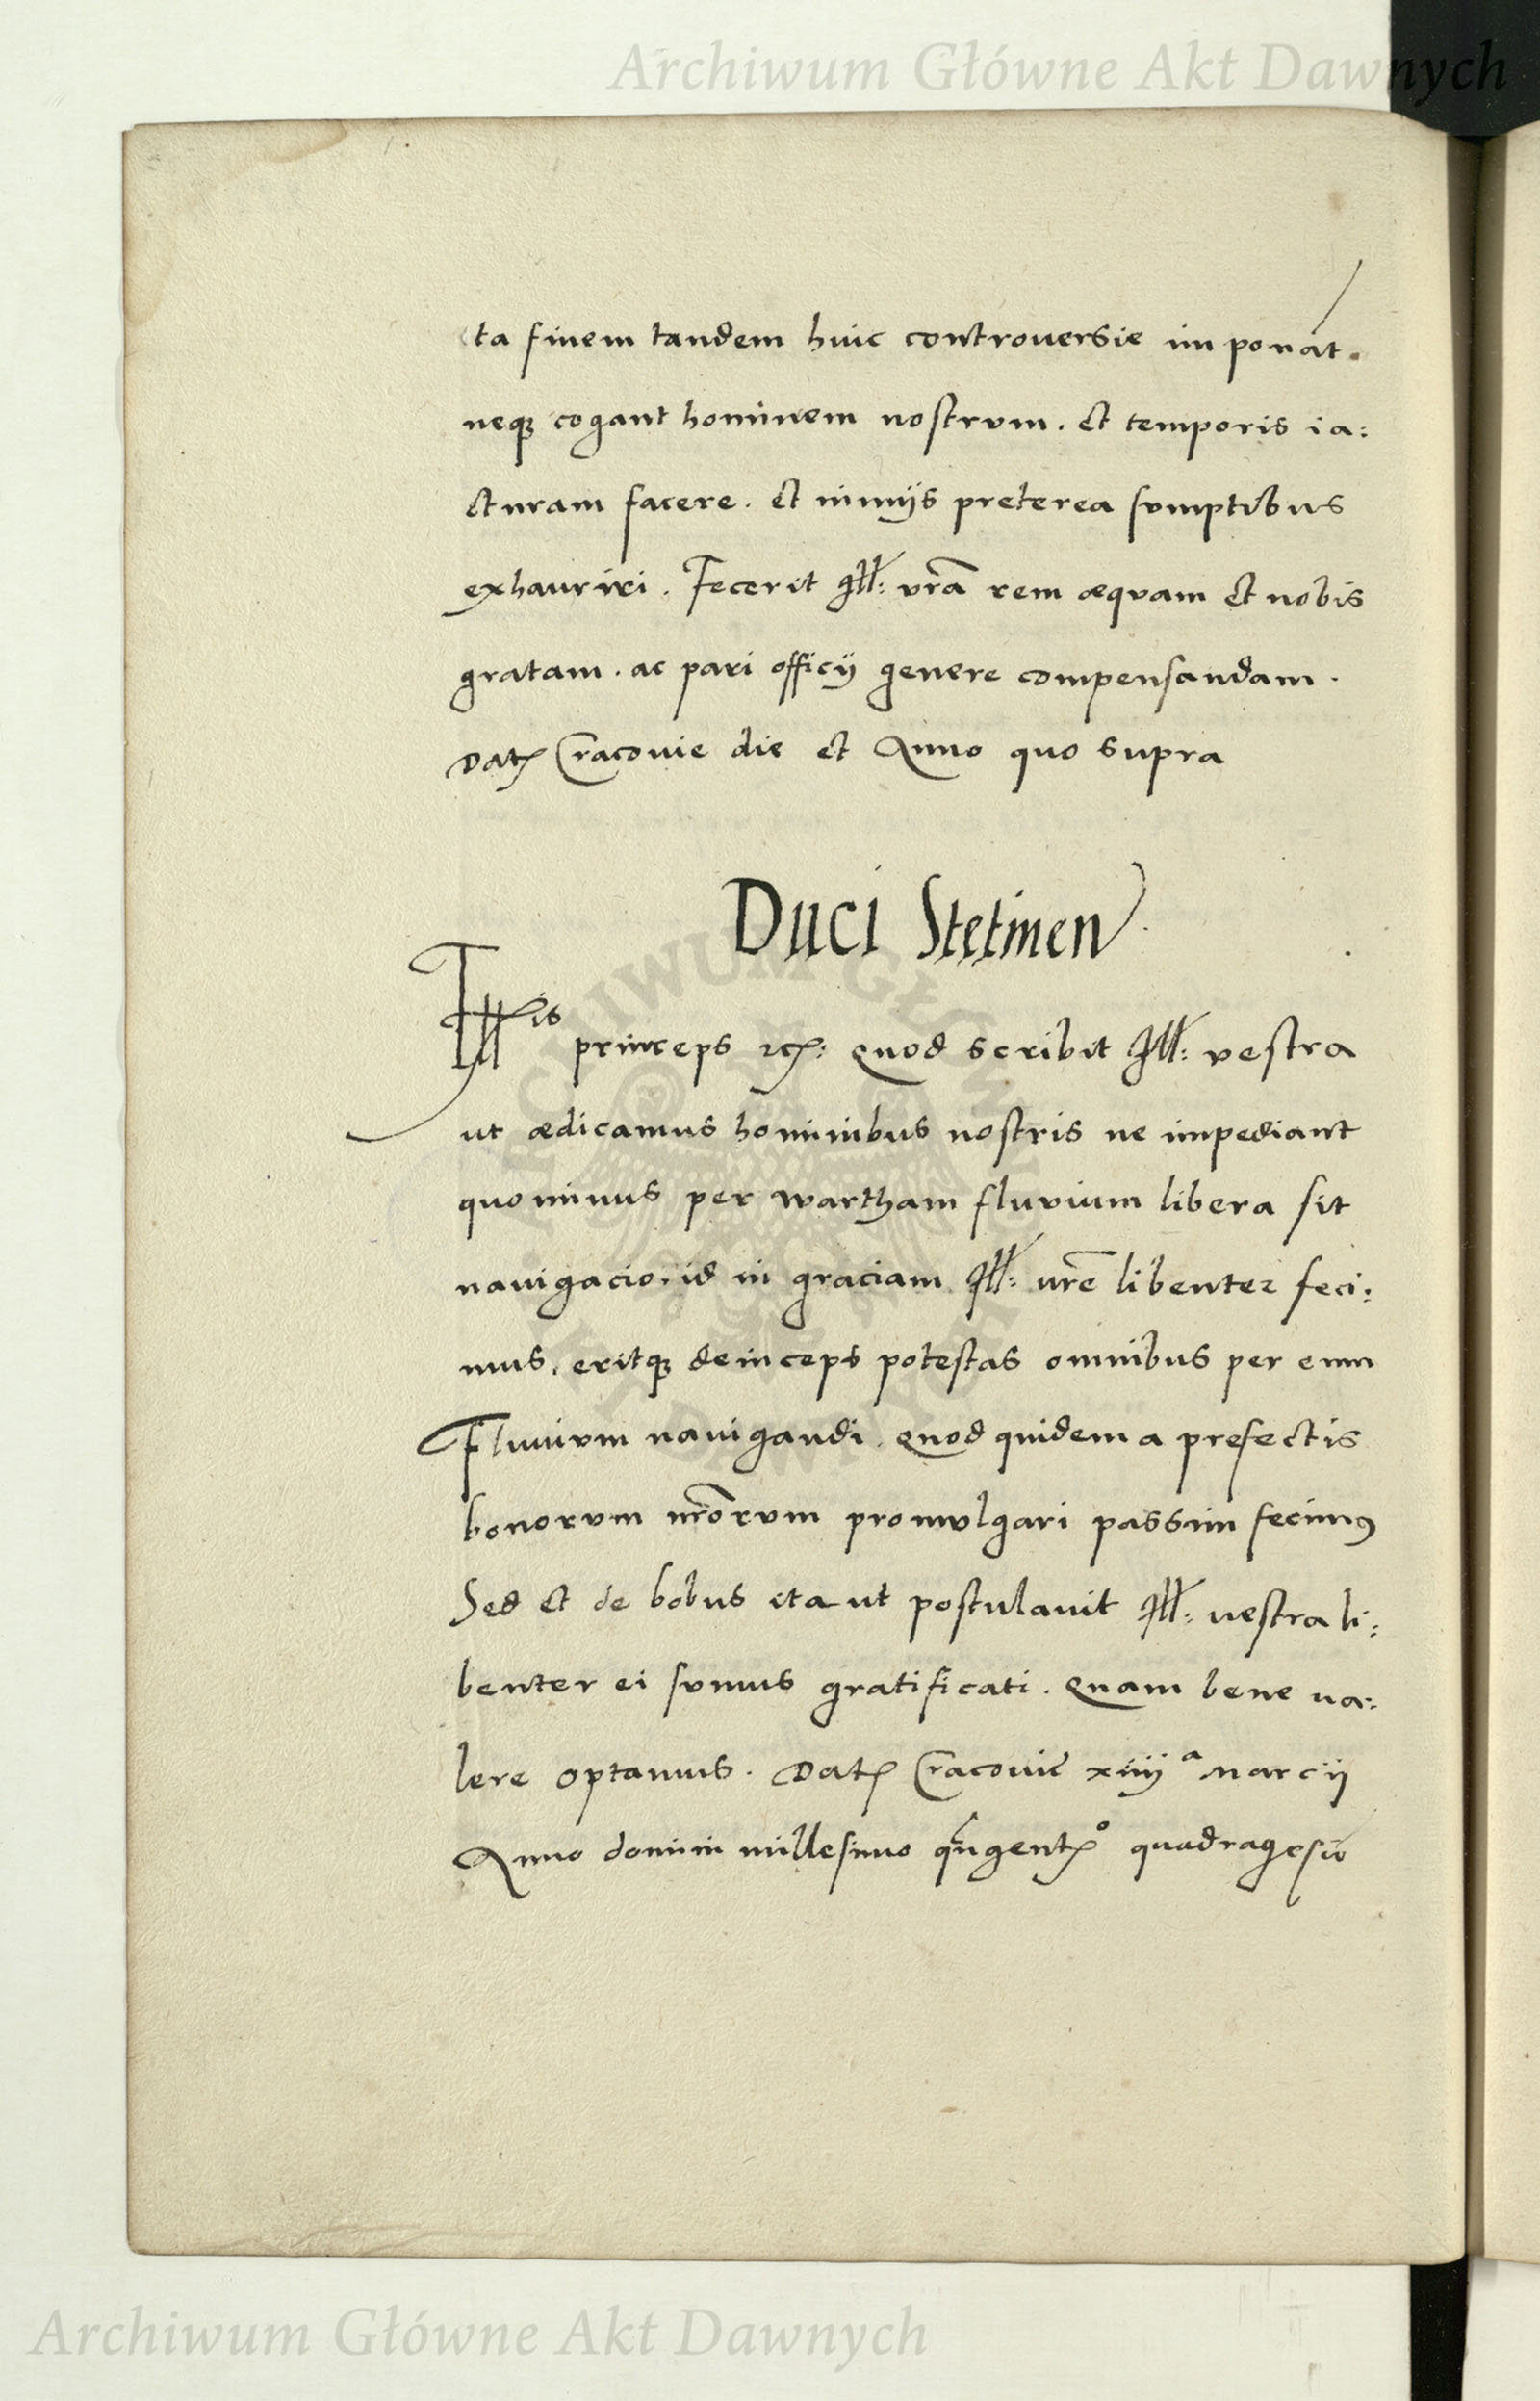 Archiwum Główne Akt Dawnych
ita finem tandem huic controversie imponāt.
neqꝫ cogant hominem nostrum. et temporis ia:
cturam facere. et nimijs preterea sumptibus
exhauriri. Fecerit Ill: vrā rem æquam et nobis
gratam. ac pari officij genere compensandam.
Datꝭ Cracovie die et Anno quo supra
Duci Stetinen
Illis princeps ⁊cꝭ: quod scribit Ill: vestra
ut ædicamus hominibus nostris ne impediant
quominus per wartham fluvium libera sit
navigacio. id in graciam Ill: vrē libenter feci:
mus. eritqꝫ deinceps potestas omnibus per eum
Fluvium navigandi. quod quidem a prefectis
bonorum nrōrum promulgari passim fecimꝰ
Sed et de bobus ita ut postulavit Ill: vestra li:
benter ei sumus gratificati. Quam bene va:
lere optamus. Datꝭ Cracovie xiiij a Marcij
Anno domini millesimo qūngentꝭo quadragesiō
Archiwum Główne Akt Dawnych